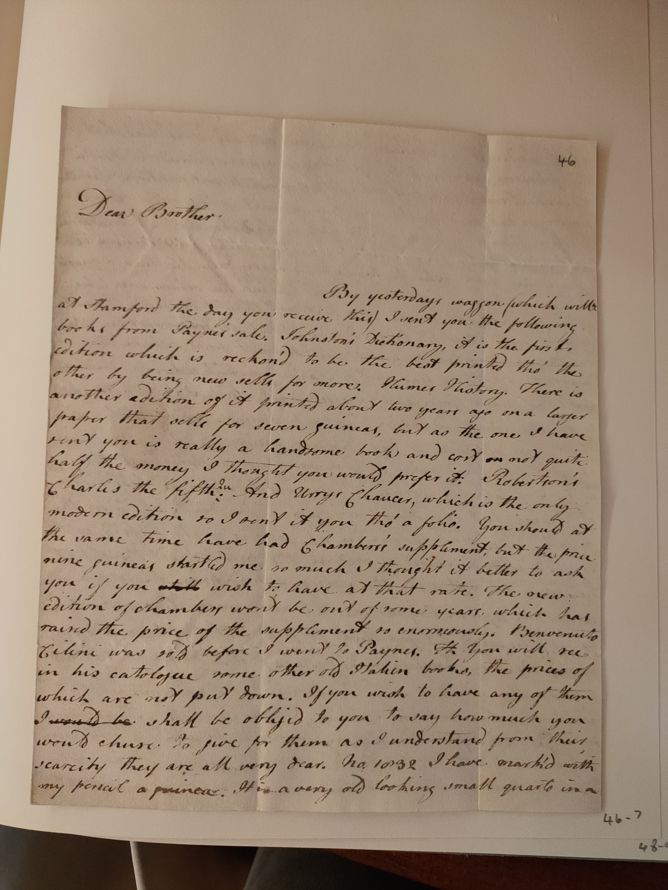 46
Dear Brother.
By yesterdays waggon (which will
at Stamford the day you receive this) I sent you the following
books from Payne's sale. Johnston's Dictionary, it is the first
edition which is reckond to be the best printed tho' the
other by being new sells for more. Humes History. There is
another edition of it printed about two years ago on a larger
paper that sells for seven guineas, but as the one I have
sent you is really a handsome book and cost not quite
half the money I thought you would prefer it. Robertson's
Charles the fifth. And Urrys Chaucer, which is the only
modern edition so I sent it you tho' a folio. You should at
the same time have had Chambers's supplement, but the price
nine guineas startled me so much I thought it better to ask
you if you wish to have at that rate. The new
edition of Chambers won't be out of some years which has
raised the price of the supplement so enormously. Benvenuto
Cilini was sold before I went to Paynes. You will see
in his catologue some other old Italien books, the prices of
which are not put down. If you wish to have any of them
I would be shall be oblijd to you to say how much you
would chuse to give for them as I understand from their
scarcity they are all very dear. No. 10132 I have mark'd with
my pencil a guinea. It is a very old looking small quarto in a
46-7
48-